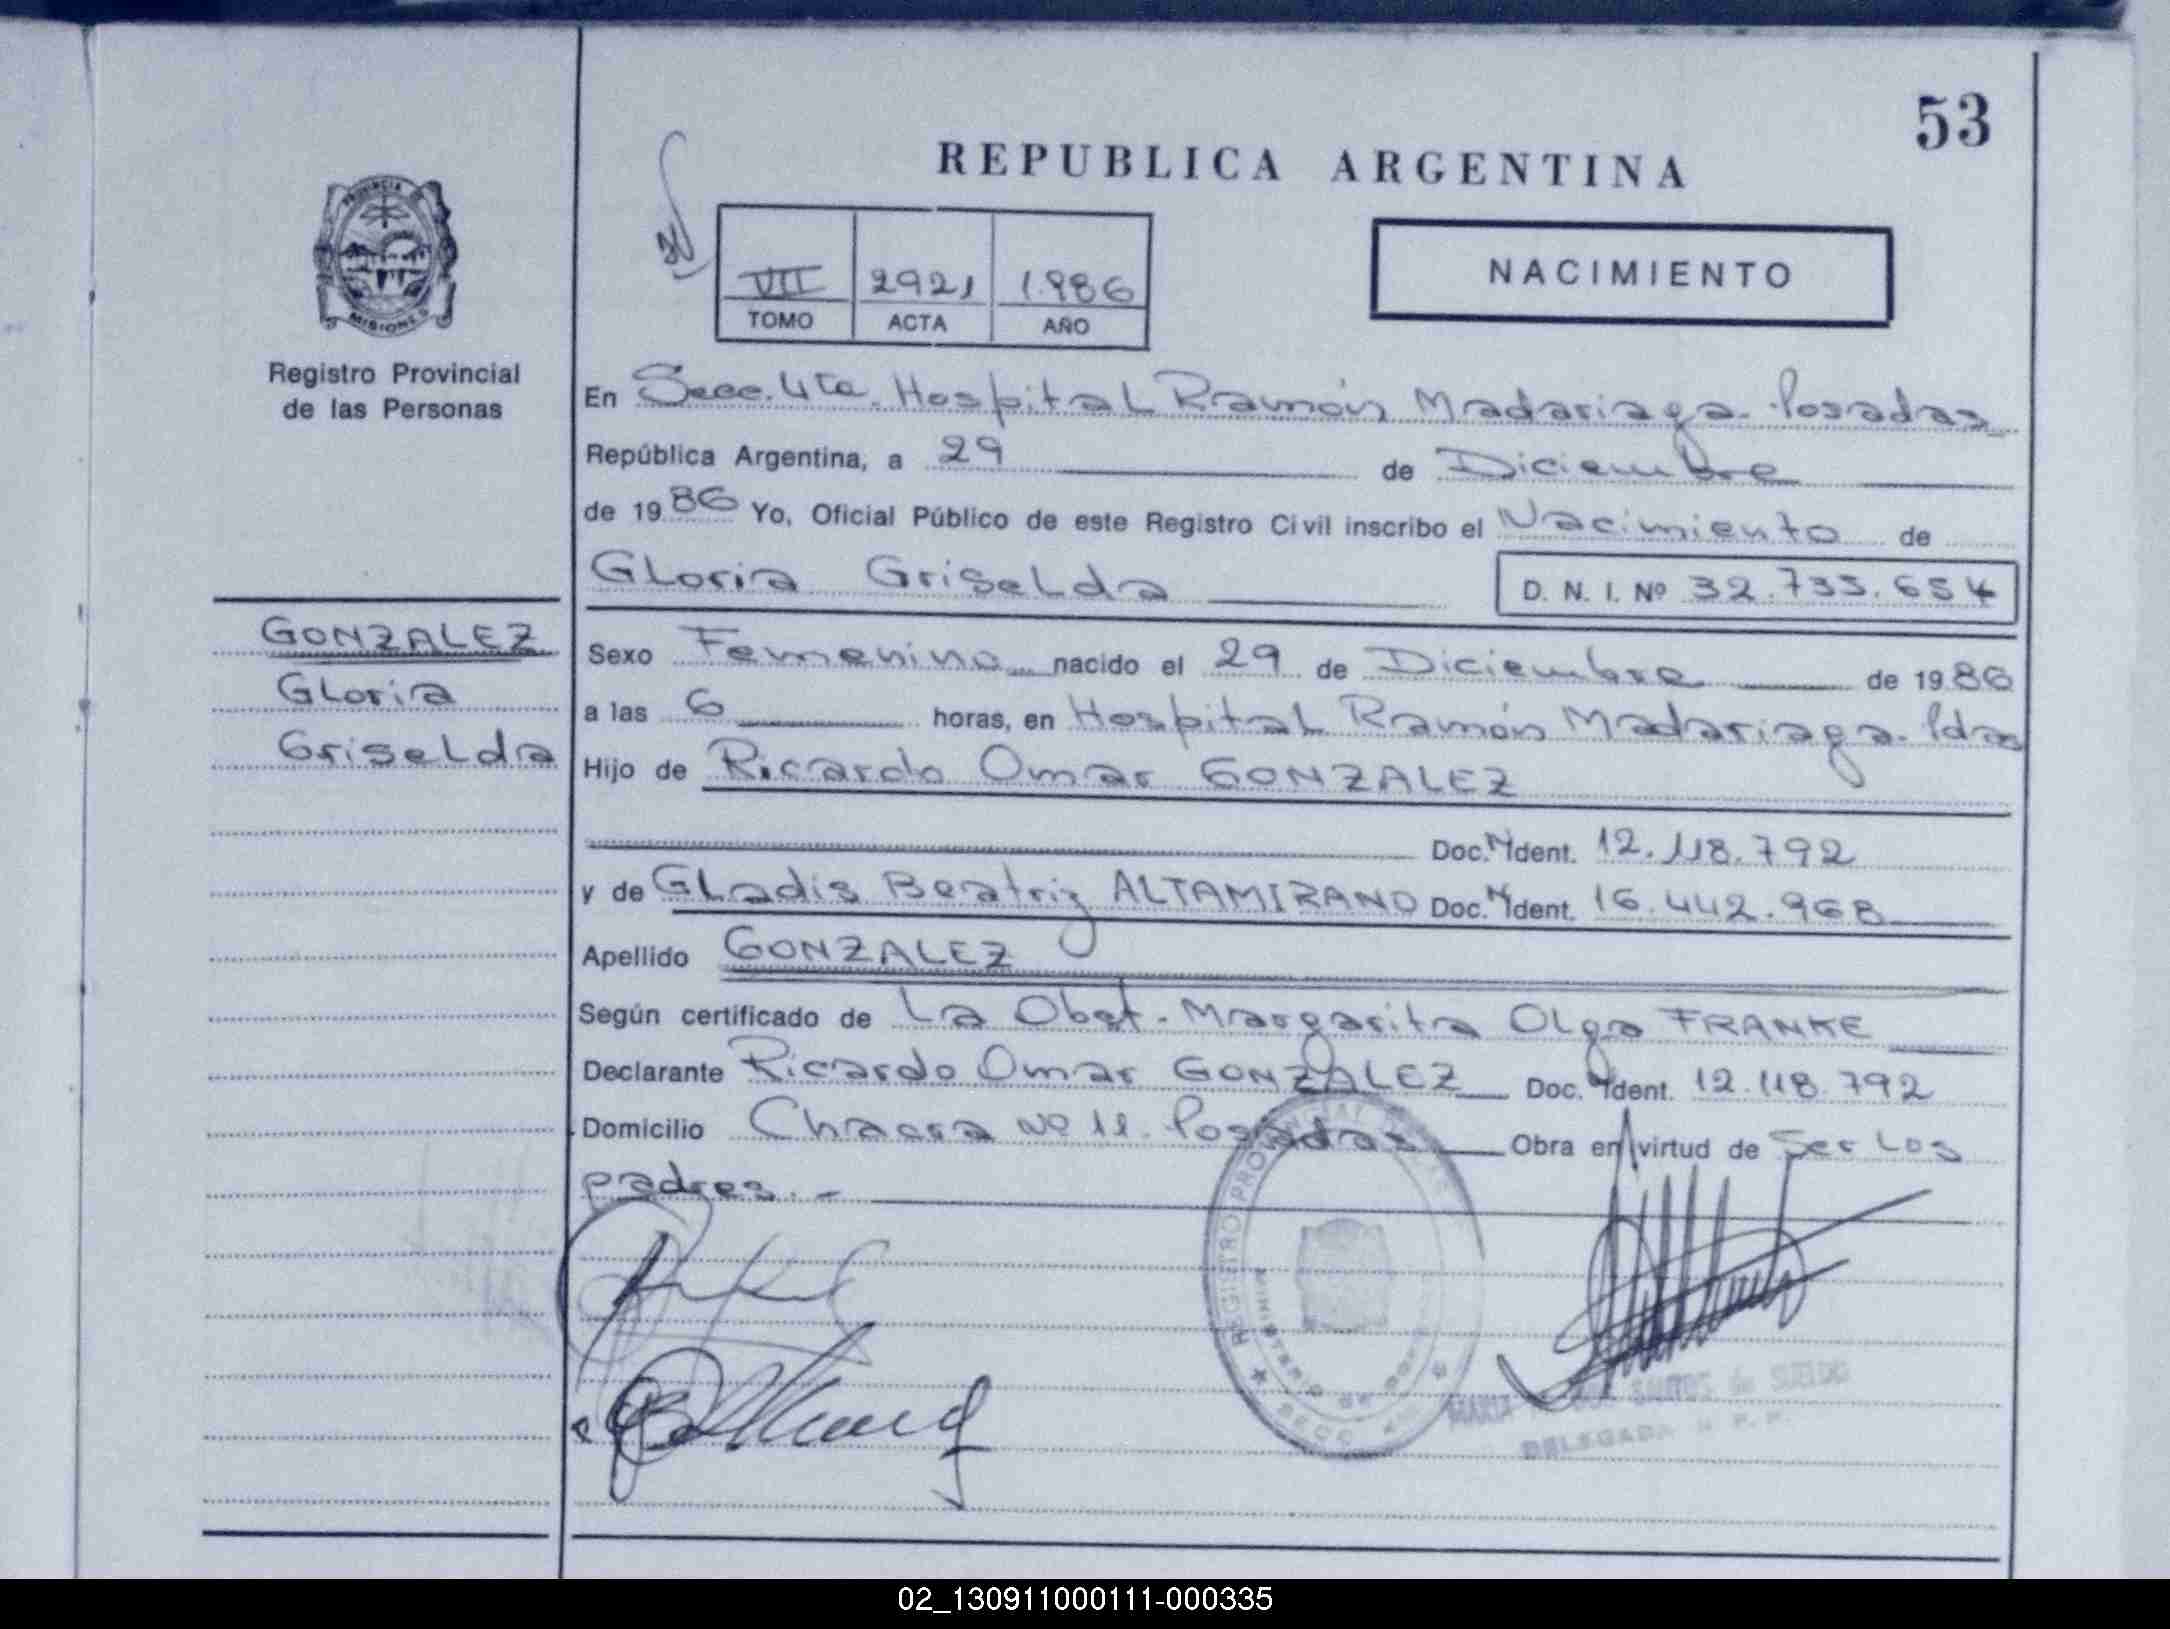 53
REPUBLICA ARGENTINA
PROVINCIA DE
MISIONES
VII 2921 1.986
TOMO ACTA AÑO
NACIMIENTO
Registro Provincial
de las Personas
En Secc. 4ta. Hospital Ramón Madariaga. Posadas
República Argentina, a 29 de Diciembre
de 1986 Yo, Oficial Público de este Registro Civil inscribo el Nacimiento de
Gloria Griselda D. N. I. Nº 32.735.654
GONZALEZ
Gloria
Griselda
Sexo Femenino nacido el 29 de Diciembre de 1986
a las 6 horas, en Hospital Ramón Madariaga. Pdas
Hijo de Ricardo Omar GONZALEZ
Doc. N Ident. 12.118.792
y de Gladis Beatriz ALTAMIRANO Doc. N Ident. 16.442.968
Apellido GONZALEZ
Según certificado de La Obst. Margarita Olga FRANKE
Declarante Ricardo Omar GONZALEZ Doc. N Ident. 12.118.792
Domicilio Chacra Nº 11. Posadas Obra en virtud de Ser Los
padres. -
REGISTRO PROVINCIAL
MINISTERIO DE
MARIA SANTOS de SUELDO
DELEGADA R. P. P.
02_130911000111-000335